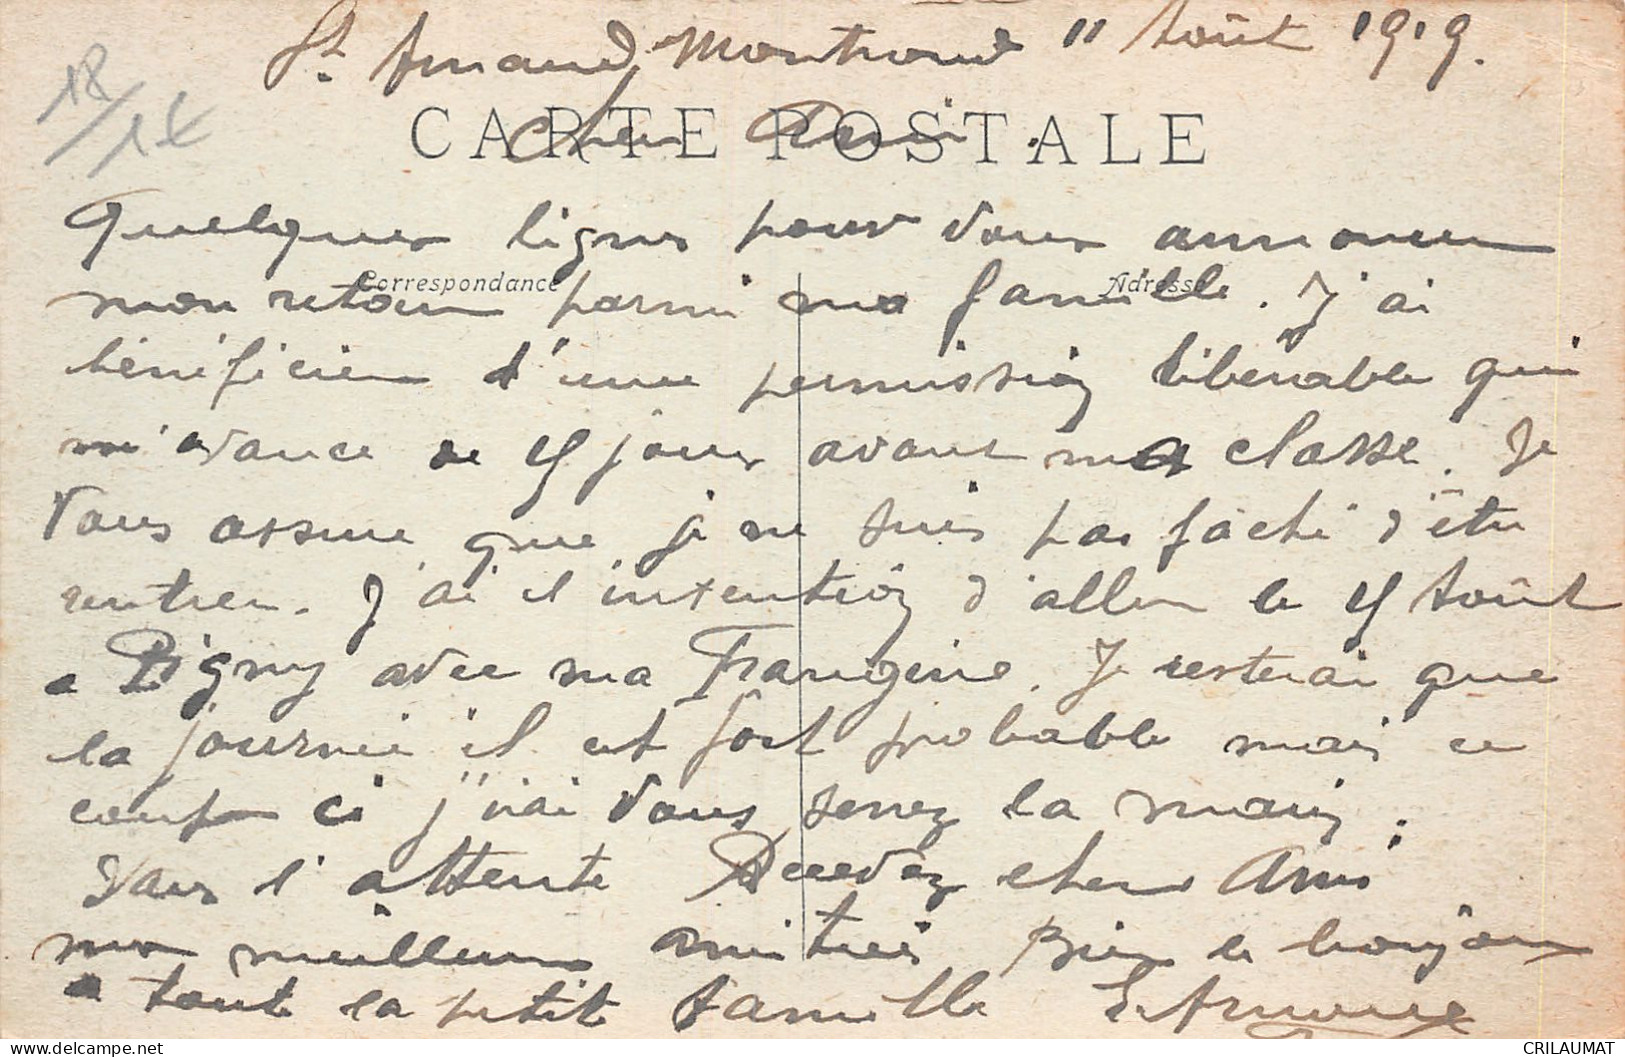 St Amand Montrond 11 Août 1919.
18/14
CARTE POSTALE
Cher Ami.
Quelques lignes pour vous annoncer
Correspondance
Adresse
mon retour parmi ma famille. J'ai
bénéficier d'une permission libérable qui
m'avance de 15 jours avant ma classe. Je
vous assure que je ne suis pas fâché d'être
rentrer. J'ai l'intention d'aller le 15 Août
a Pigny avec ma Frangine. Je resterai que
la journée il est fort probable mais ce
coup ci j'irai vous serrez la main.
Dans l'attente Recevez cher Ami
mes meilleurs amitiés Bien le bonjour
a toute la petite famille
delcampe.net
CRILAUMAT